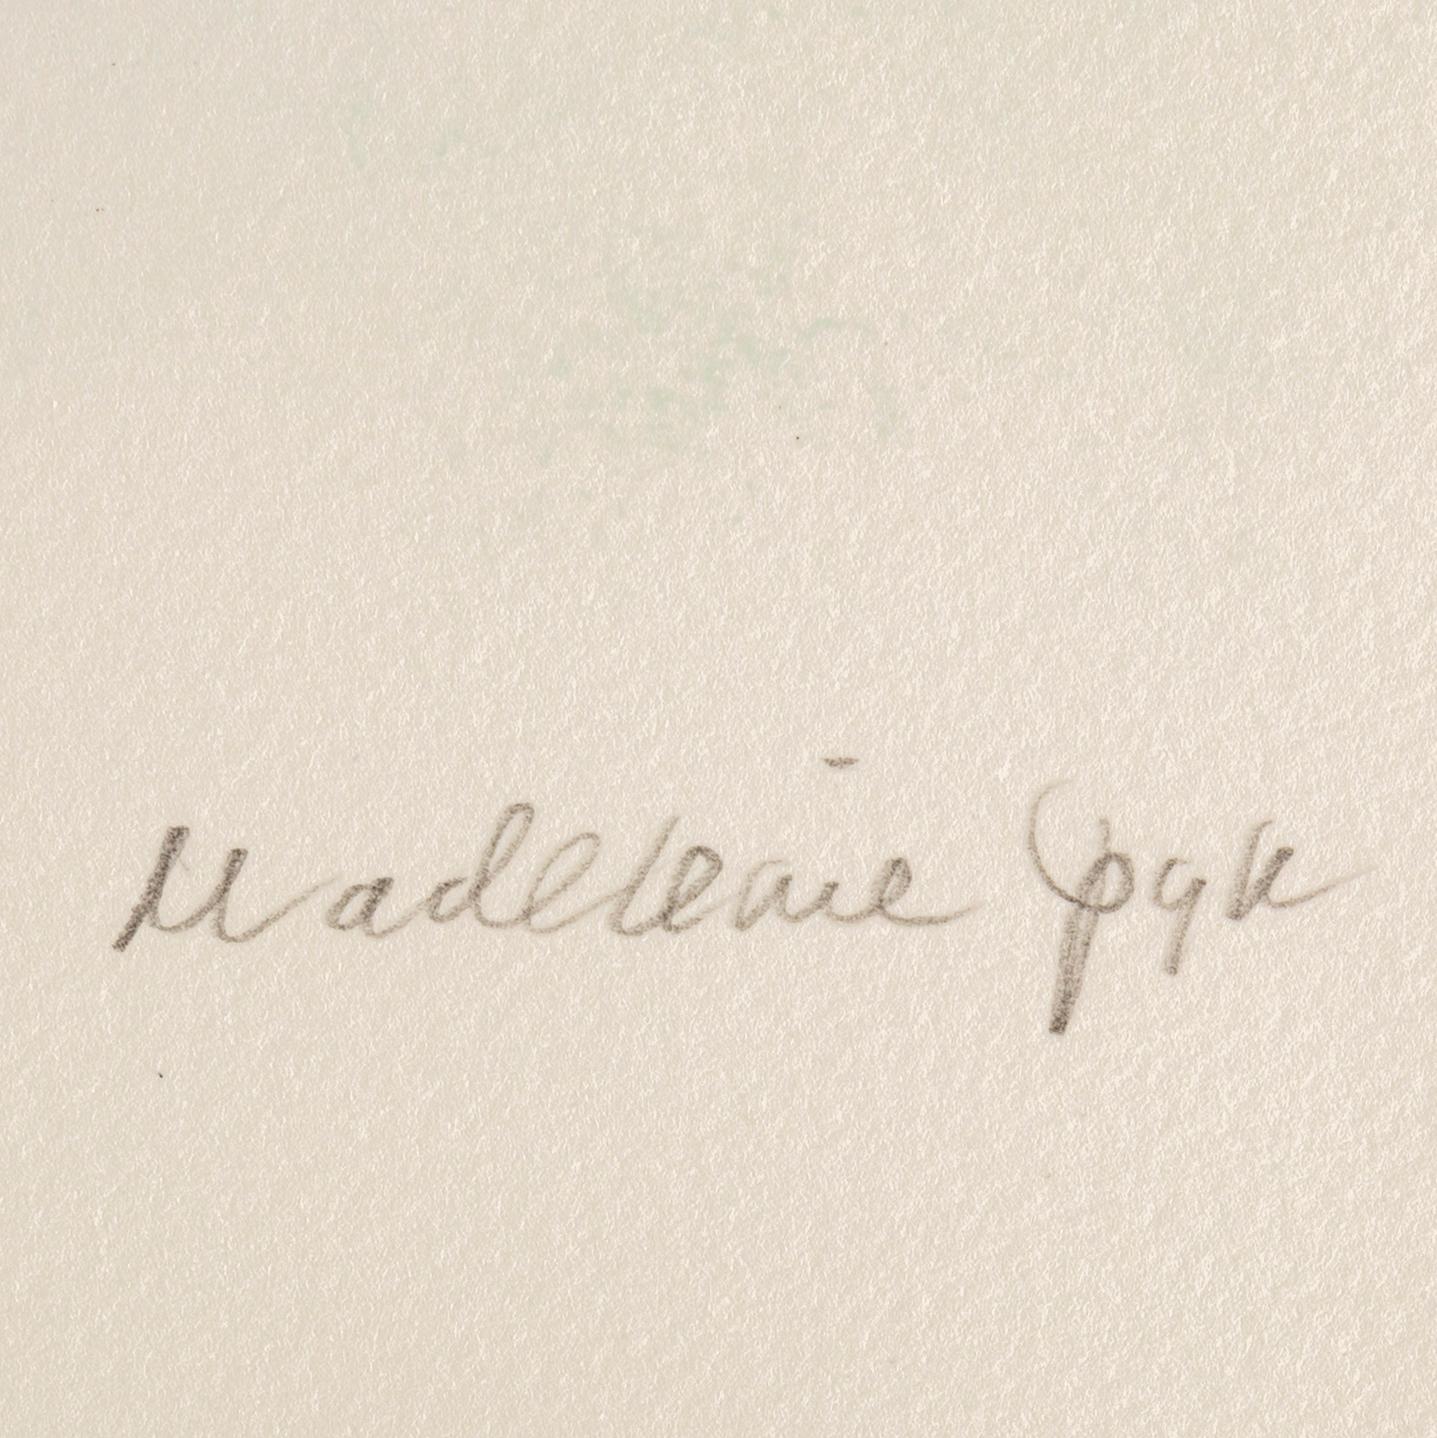 Madeleine Pyk